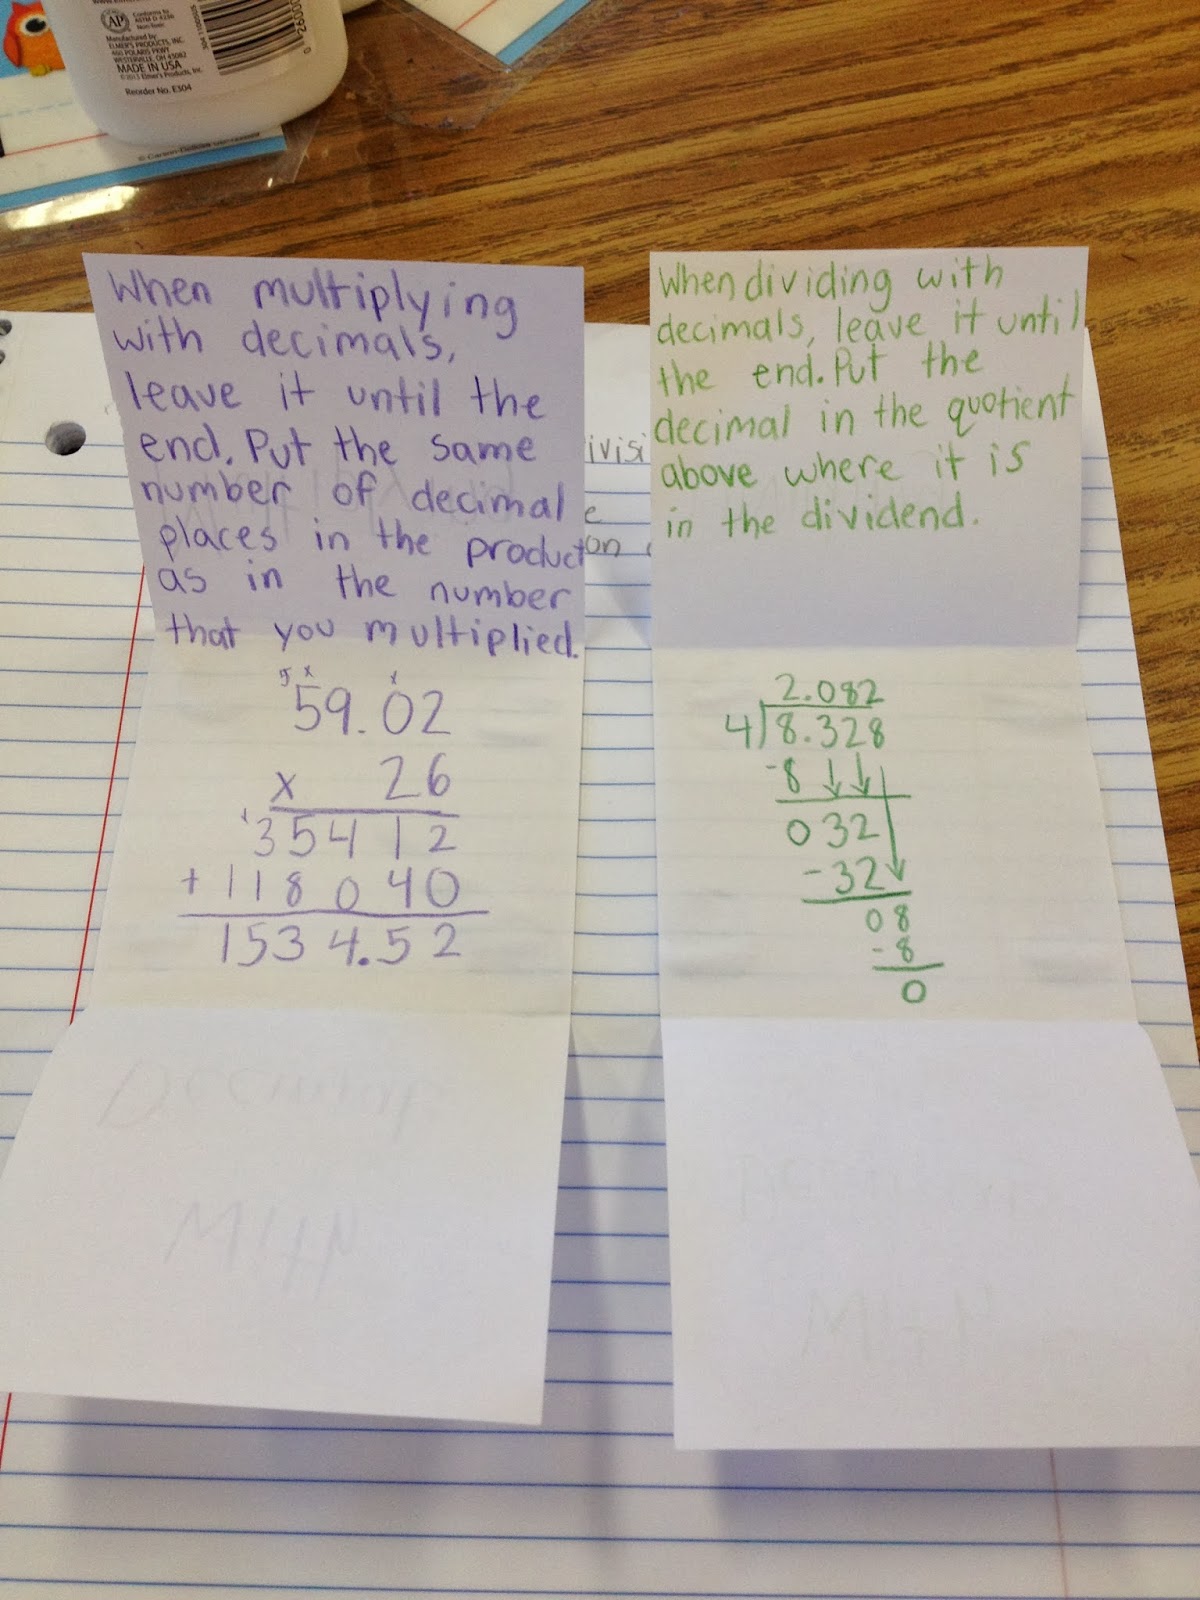 AP
CONFORMS TO
ASTM D-4236
Non-Toxic
Manufactured by
ELMER'S PRODUCTS, INC.
460 POLARIS PKWY
WESTERVILLE, OH 43082
MADE IN USA
©2013 Elmer's Products, Inc.
Reorder No. E304
© Carson-Dellosa
When multiplying
with decimals,
leave it until the
end. Put the same
number of decimal
places in the product
as in the number
that you multiplied.
59.02
x 26
35412
+ 118040
1534.52
When dividing with
decimals, leave it until
the end. Put the
decimal in the quotient
above where it is
in the dividend.
2.082
4)8.328
-8
032
-32
08
-8
0
ivisi
e
on
Decimal
Math